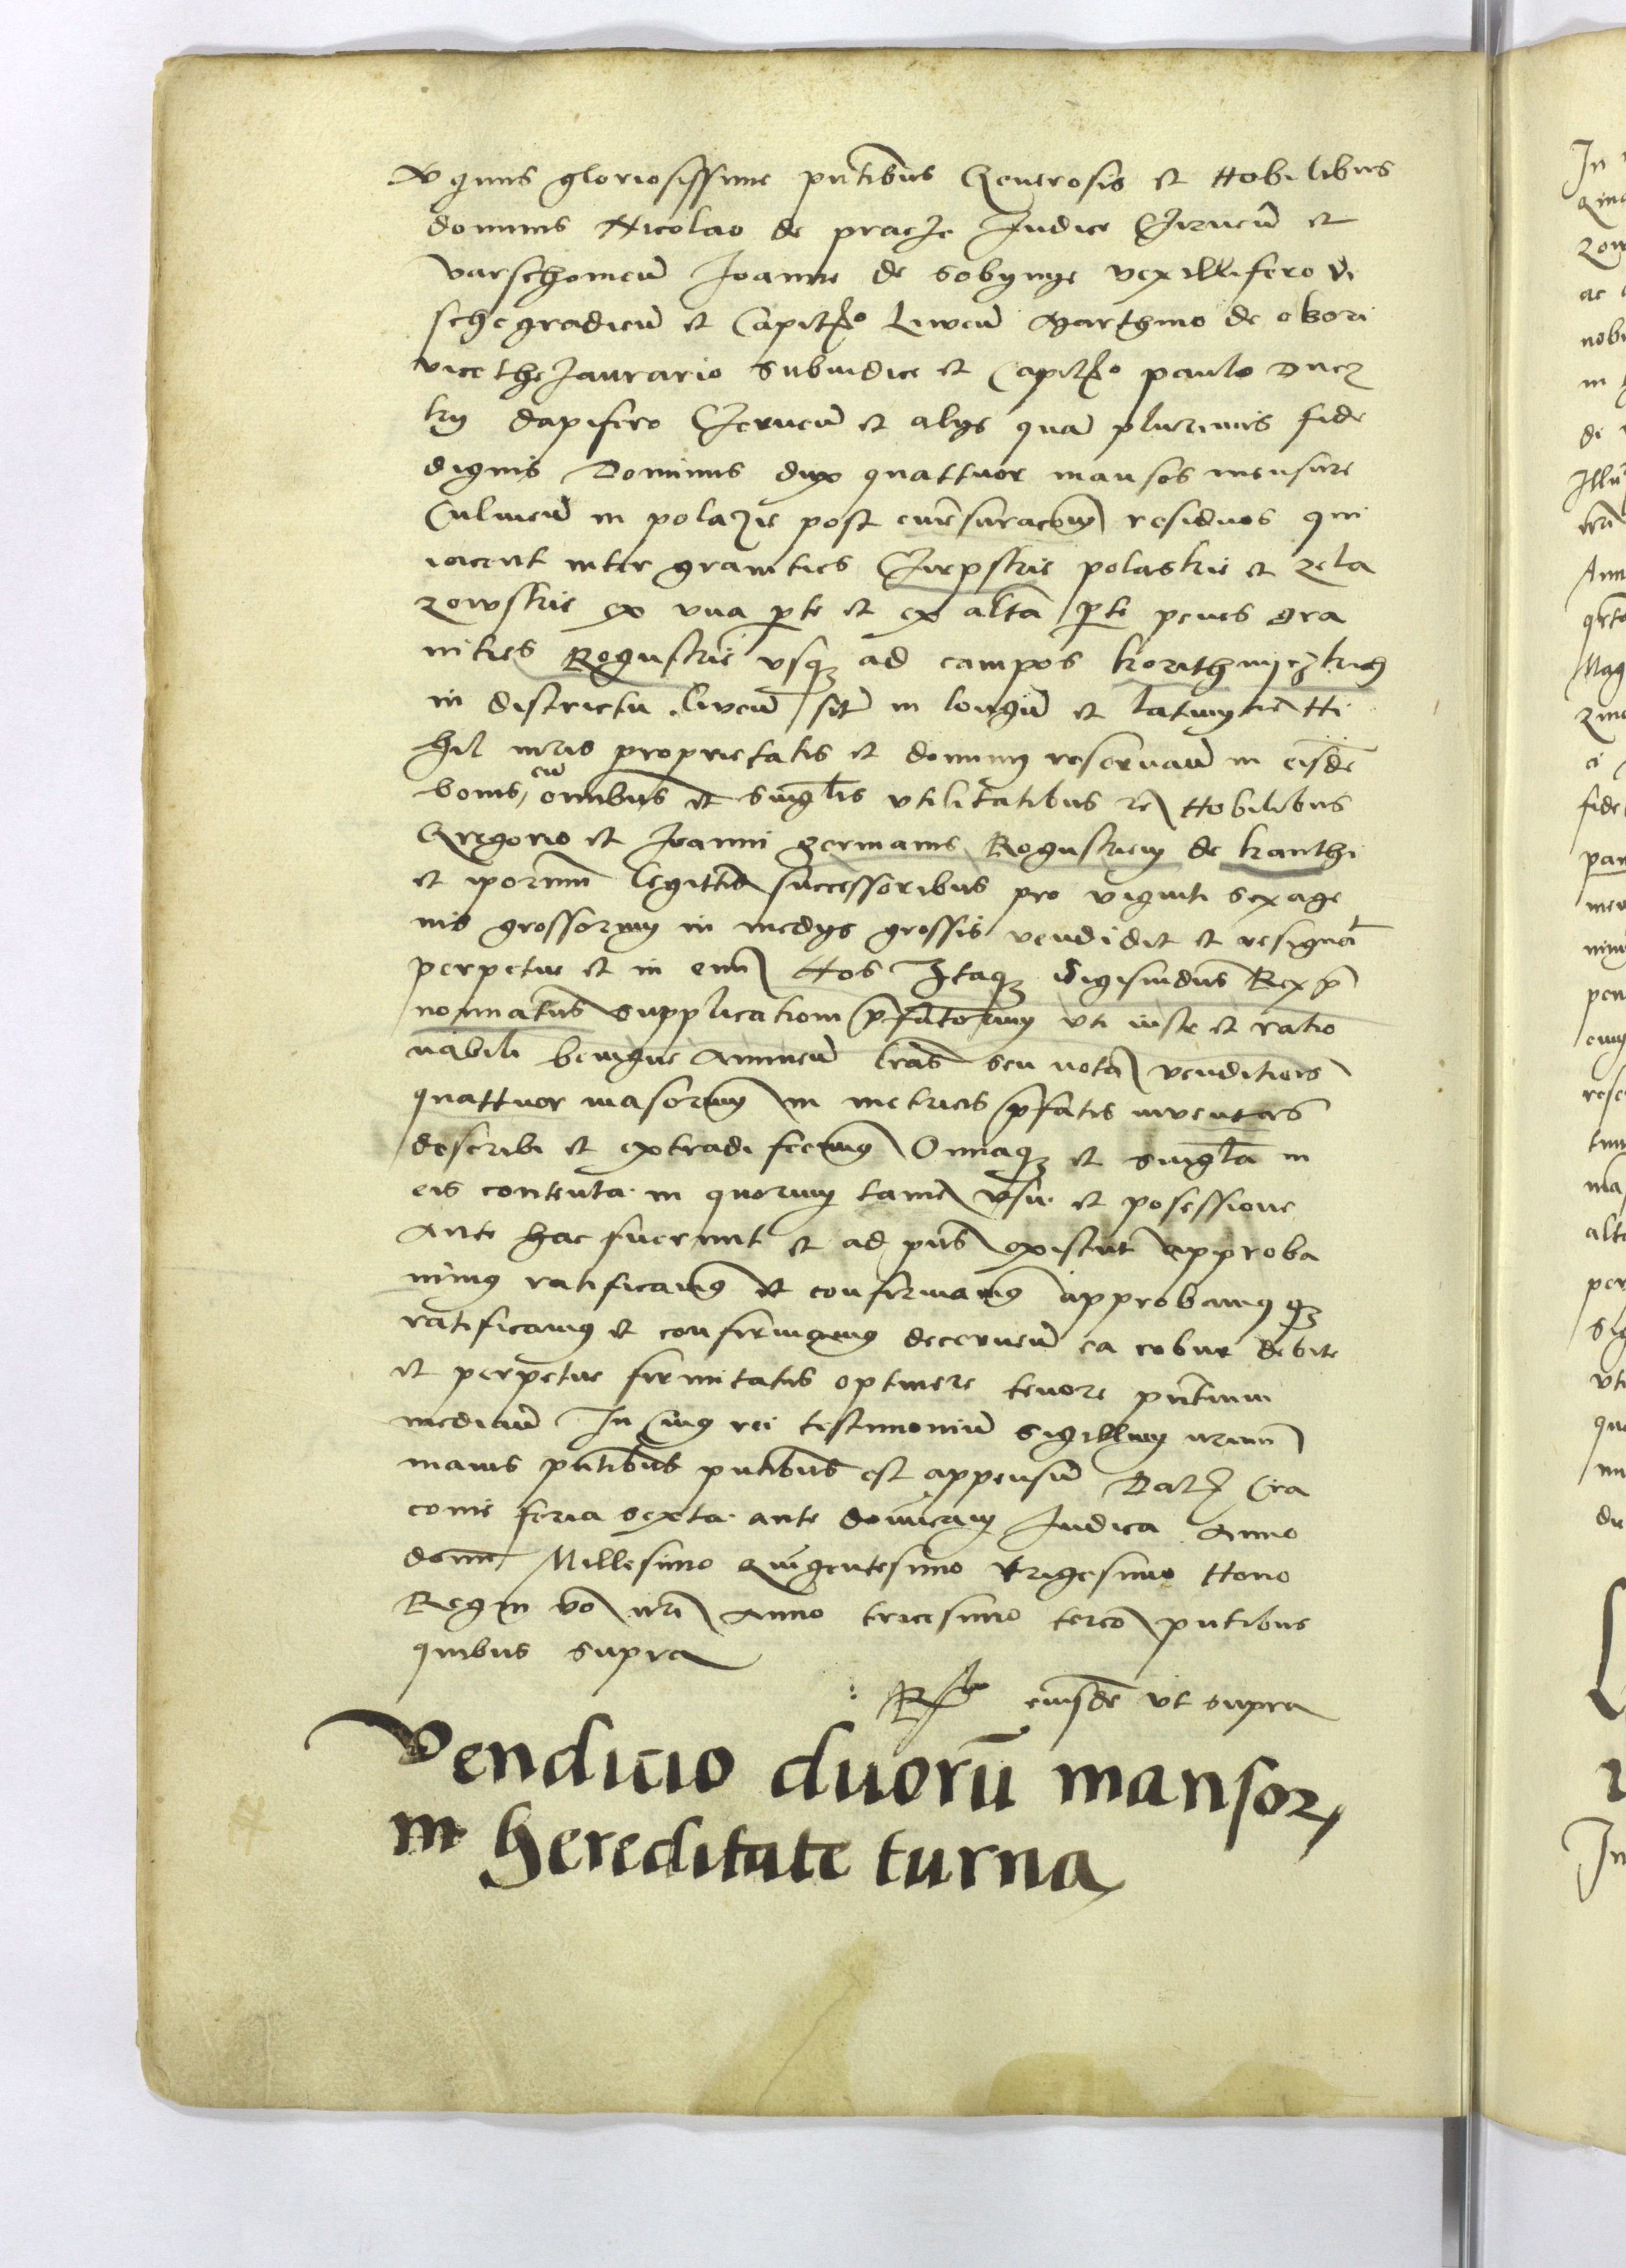 Agnus gloriosissime pntibus Generosis et Nobilibus
dominis Nicolao de pracze Iudice Cirnen et
varschovien Ioanne de sobynye vexillifero vi
schegradien et Capitneo Liwen Marthino de obori
vicethezaurario subiudice et Capitneo paulo Ducz
ky dapifero Czernen et alys quam plurimis fide
dignis Dominus dux quattuor mansos mensure
Culmen in polazie post emensuracom residuos qui
iacent inter granities Cirpskie polaskie et zela
zowskie ex vna pte et ex altera pte penes gra
nities Roguskie vsq ad campos korithnyczkich
in districtu Liwen sit in longum et latum Ni
hil iuris proprietatis et dominy reservan in eisdem
bonis, cum omnibus et singlis vtilitatibus re Nobilibus
Gregorio et Ioanni germanis Roguskiem de kanthi
et iporum legittis successoribus pro viginti sexage
nis grossorum in medys grossis vendidit et resignat
perpetue et in evum Nos Itaq Sigismdus Rex p
nominatus supplicationi pfatorum vti iuste et ratio
nabili benigne annuen lras seu nota venditiois
quattuor masorum in metricis pfatis inventas
describi et extradi fecimus Omiaq et singla in
eis contenta in quorum tamen vsu et posessione
ante hac fuerunt et ad pns existunt approba
mimus ratificamus et confirmamus approbamusq
ratificamus et confirmamus decernen ea robur debite
et perpetue firmitatis optinere tenore pntium
median In cuius rei testimonium sigillum nrum
maius pntibus pntibus est appensum Datz Cra
covie feria sexta ante dominicam Iudica Anno
domi Millesimo quingentesimo trigesimo Nono
Regni vo nri Anno tricesimo terco pntibus
quibus supra
Rlo eiusde vt supra
Vendicio duoru mansor
in hereditate turna